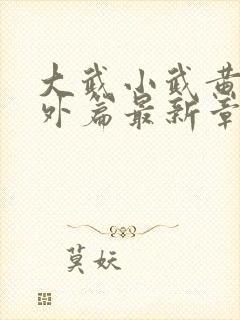 大武小武黄
外篇最新章
莫妖